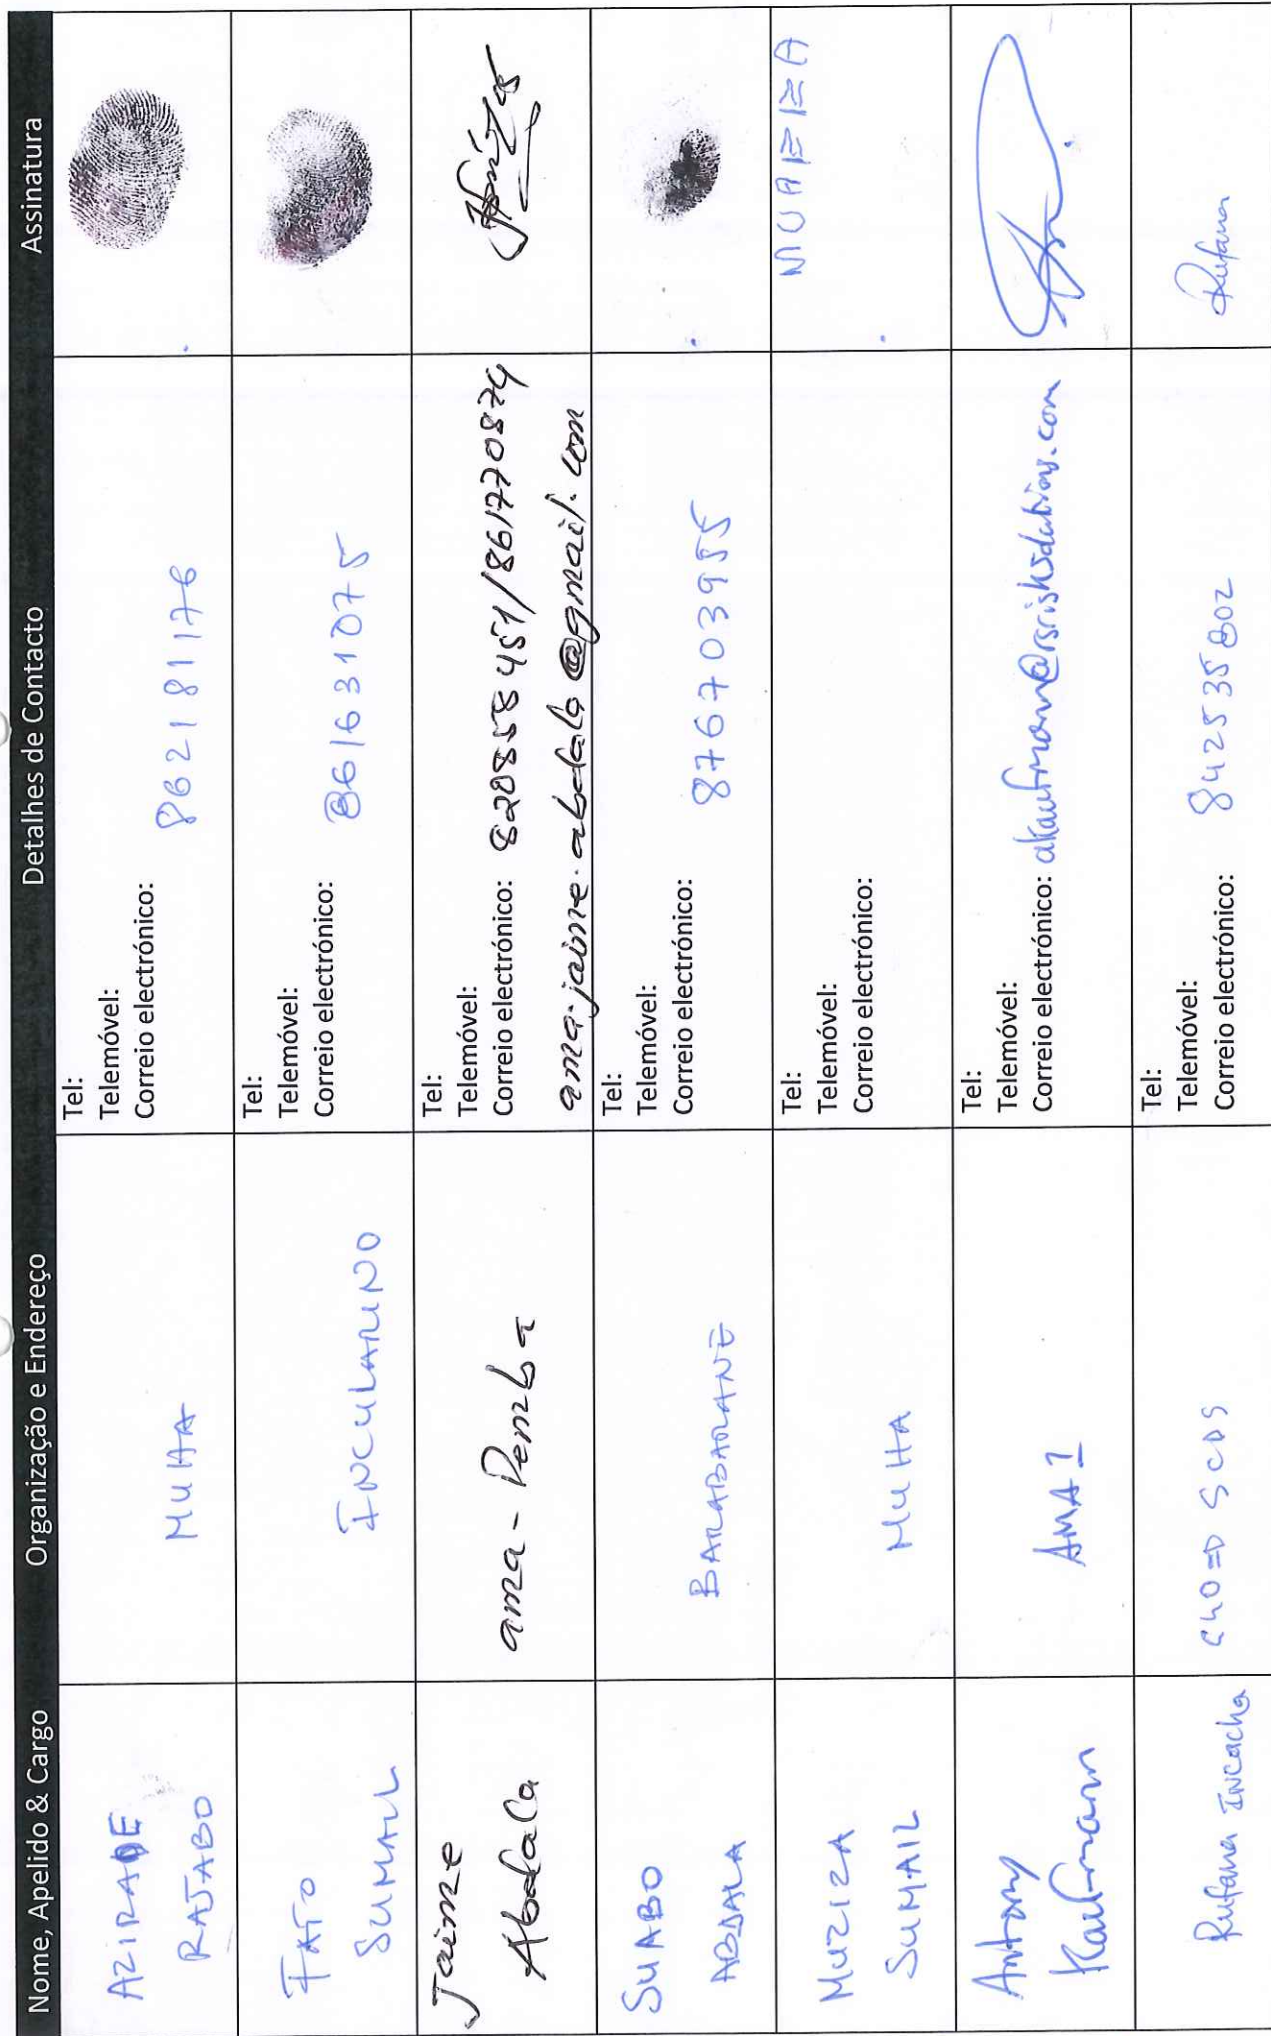 Nome, Apelido & Cargo Organização e Endereço Detalhes de Contacto Assinatura
AZIRADE
RAJABO
MUHA
Tel:
Telemóvel:
Correio electrónico:
862181176
FATO
SUMAIL
INCULARINO
Tel:
Telemóvel:
Correio electrónico:
861631075
Jaime
Abdala
ama - Pemba
Tel:
Telemóvel:
Correio electrónico: 820858451/861770874
ama.jaime.abdala@gmail.com
SUABO
ABDALA
BARABARANE
Tel:
Telemóvel:
Correio electrónico:
876703955
MUZIZA
SUMAIL
MUHA
Tel:
Telemóvel:
Correio electrónico:
Antony
Kaufmann
AMA1
Tel:
Telemóvel:
Correio electrónico:
Rufana Incacha
Tel:
Telemóvel:
Correio electrónico:
842535802
Rufana